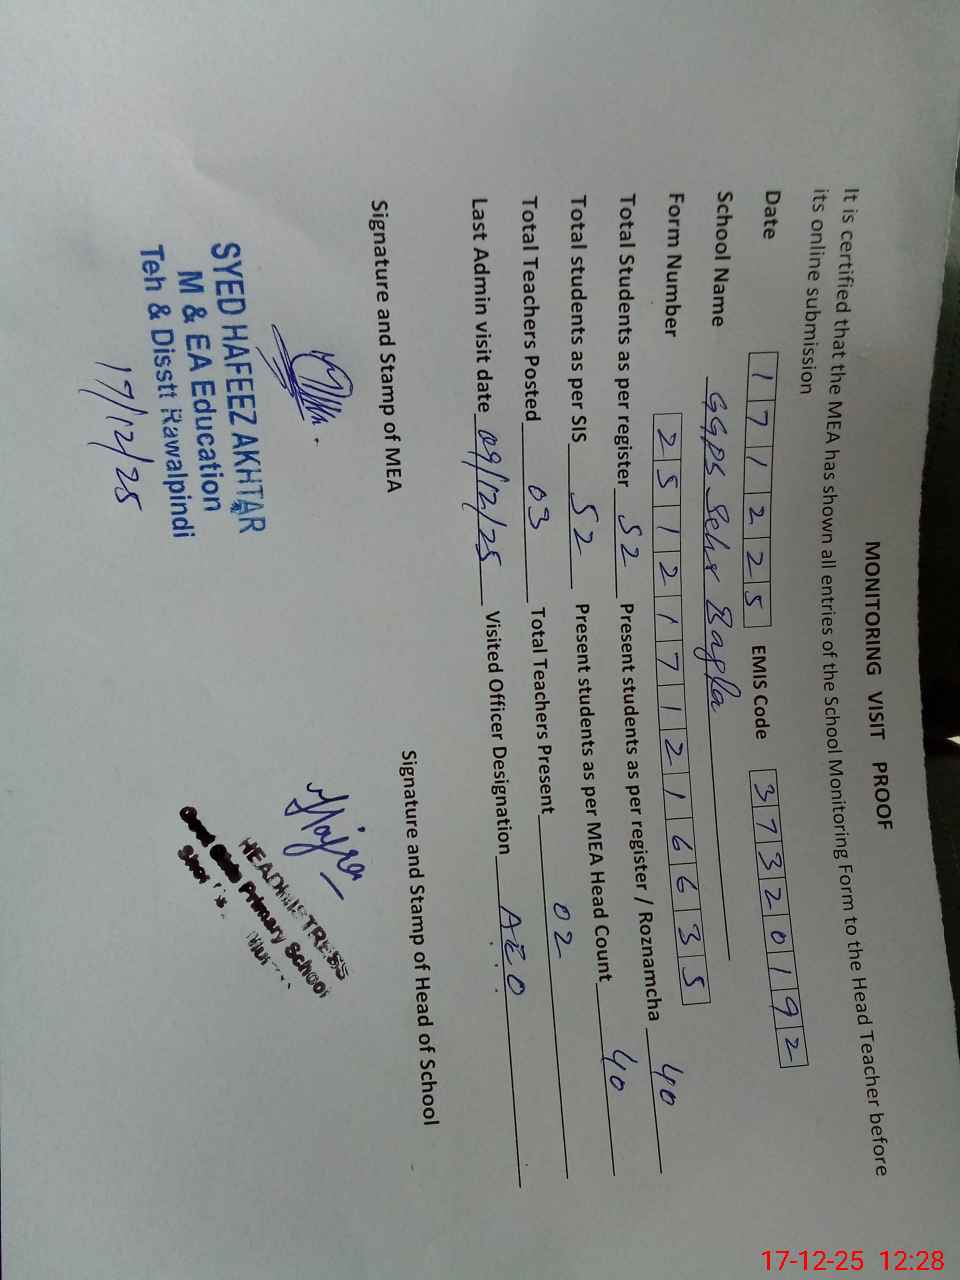 MONITORING VISIT PROOF
It is certified that the MEA has shown all entries of the School Monitoring Form to the Head Teacher before
its online submission
Date 1 7 1 2 2 5 EMIS Code 3 7 3 2 0 1 9 2
School Name GGPS Sehr Bagla
Form Number 2 5 1 2 1 7 1 2 1 6 6 3 5
Total Students as per register 52 Present students as per register / Roznamcha 40
Total students as per SIS 52 Present students as per MEA Head Count 40
Total Teachers Posted 03 Total Teachers Present 02
Last Admin visit date 09/12/25 Visited Officer Designation AEO
Signature and Stamp of MEA Signature and Stamp of Head of School
SYED HAFEEZ AKHTAR
M & EA Education
Teh & Disstt Rawalpindi
17/12/25
HEADMISTRESS
Primary School
17-12-25 12:28